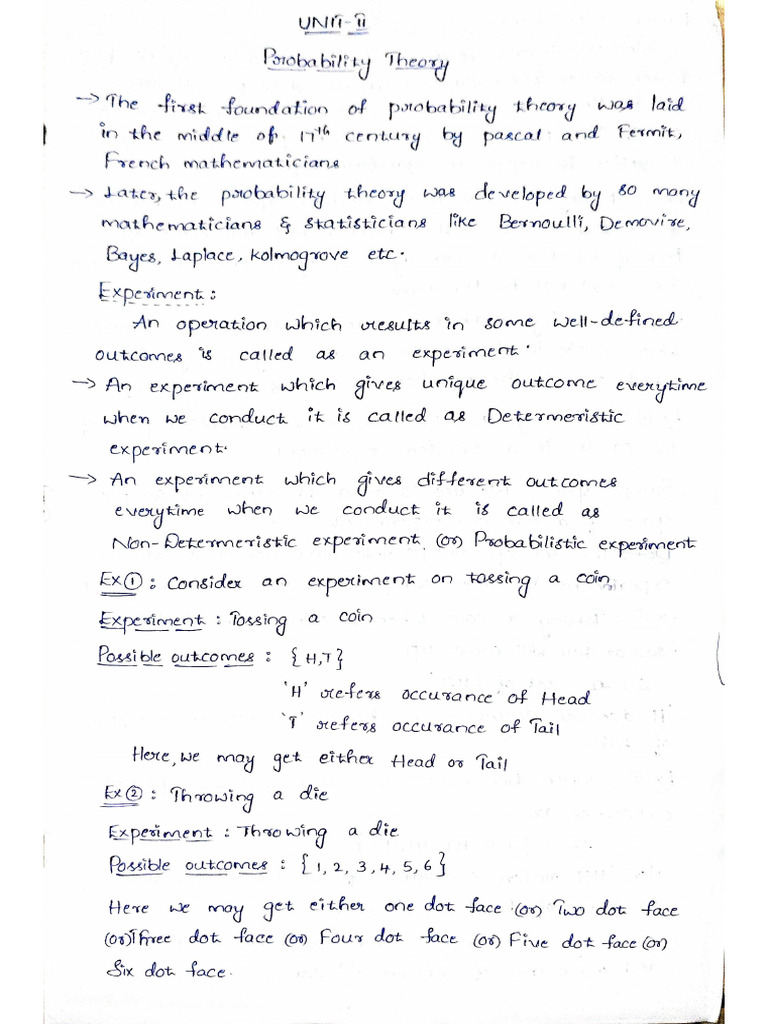 UNIT-II
Probability Theory
→ The first foundation of probability theory was laid
in the middle of 17th century by pascal and Fermit,
French mathematicians
→ Later, the probability theory was developed by so many
mathematicians & statisticians like Bernoulli, Demovire,
Bayes, Laplace, Kolmogrove etc.
Experiment :
An operation which results in some well-defined
outcomes is called as an experiment.
→ An experiment which gives unique outcome everytime
when we conduct it is called as Determeristic
experiment.
→ An experiment which gives different outcomes
everytime when we conduct it is called as
Non-Determeristic experiment (or) Probabilistic experiment
Ex ① : Consider an experiment on tossing a coin.
Experiment : Tossing a coin
Possible outcomes : {H,T}
'H' refers occurance of Head
'T' refers occurance of Tail
Here, we may get either Head or Tail
Ex ② : Throwing a die
Experiment : Throwing a die
Possible outcomes : {1, 2, 3, 4, 5, 6}
Here we may get either one dot face (or) Two dot face
(or) Three dot face (or) Four dot face (or) Five dot face (or)
Six dot face.